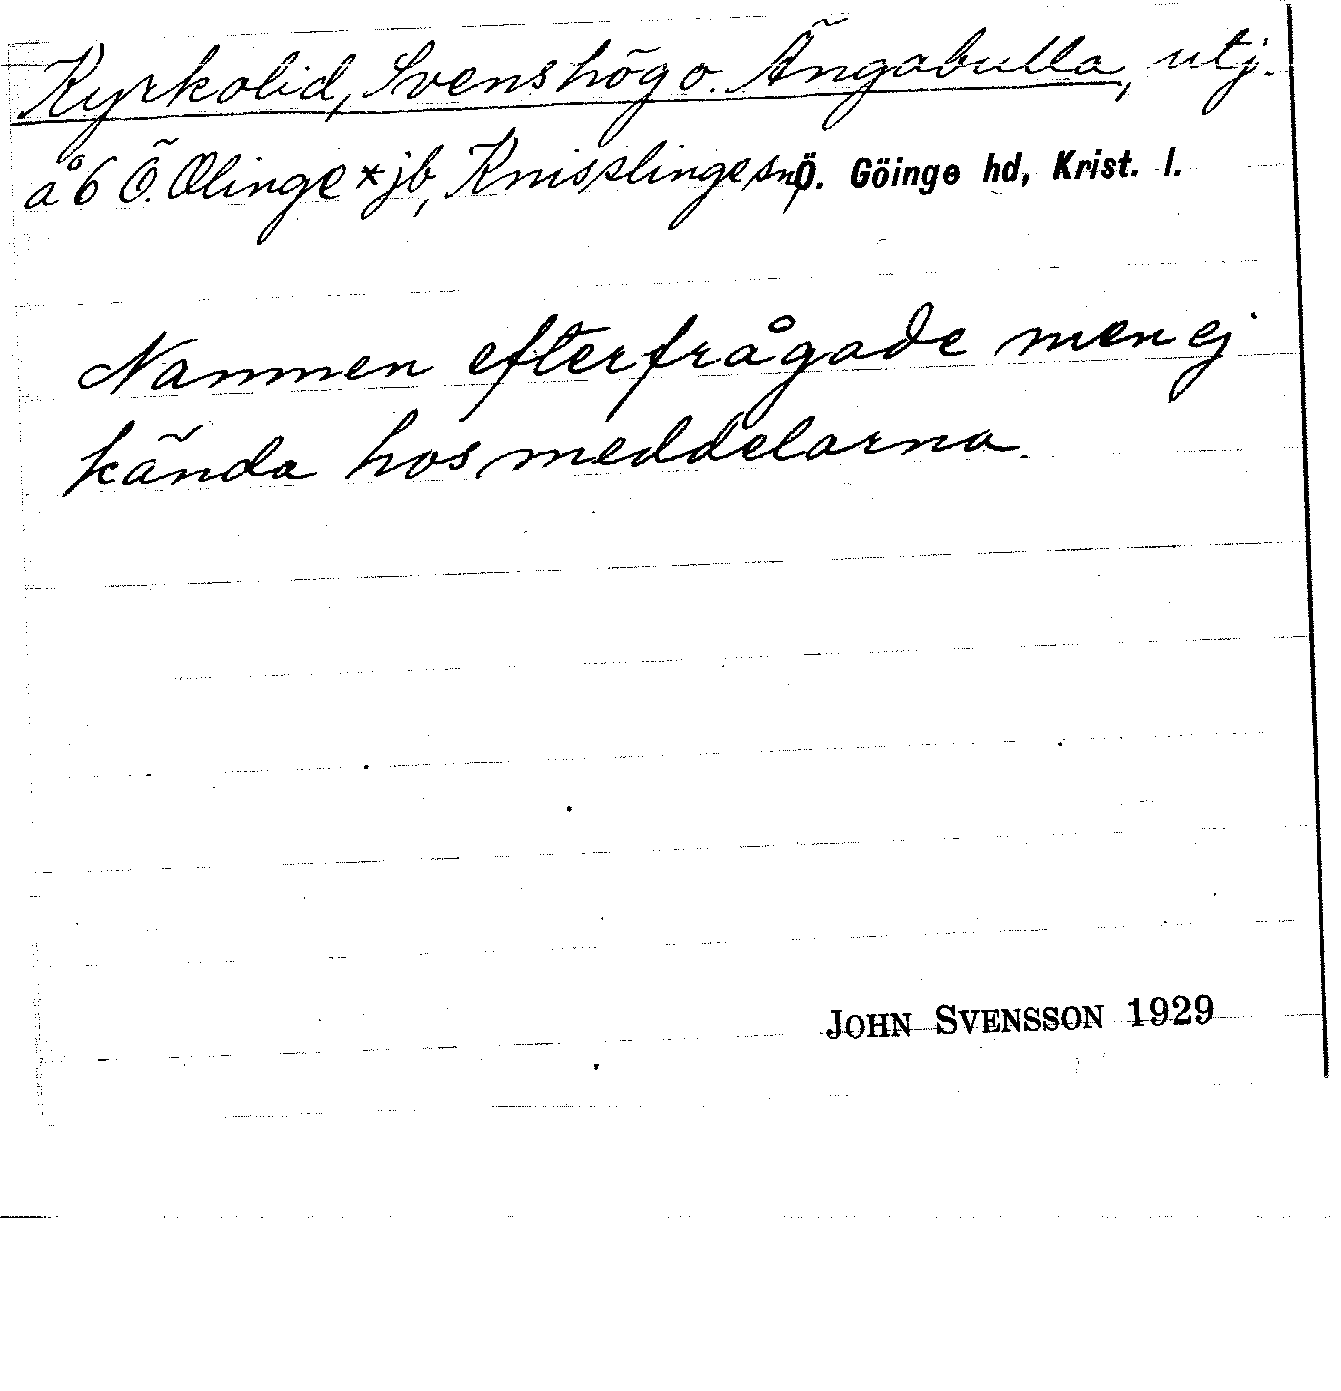 Kyrkolid, Svenshög o. Ängabulla, utj.
å 6 Ö. Olinge * jb, Knisslinge sn, Ö. Göinge hd, Krist. l.
Namnen efterfrågade men ej
kända hos meddelarna.
JOHN SVENSSON 1929